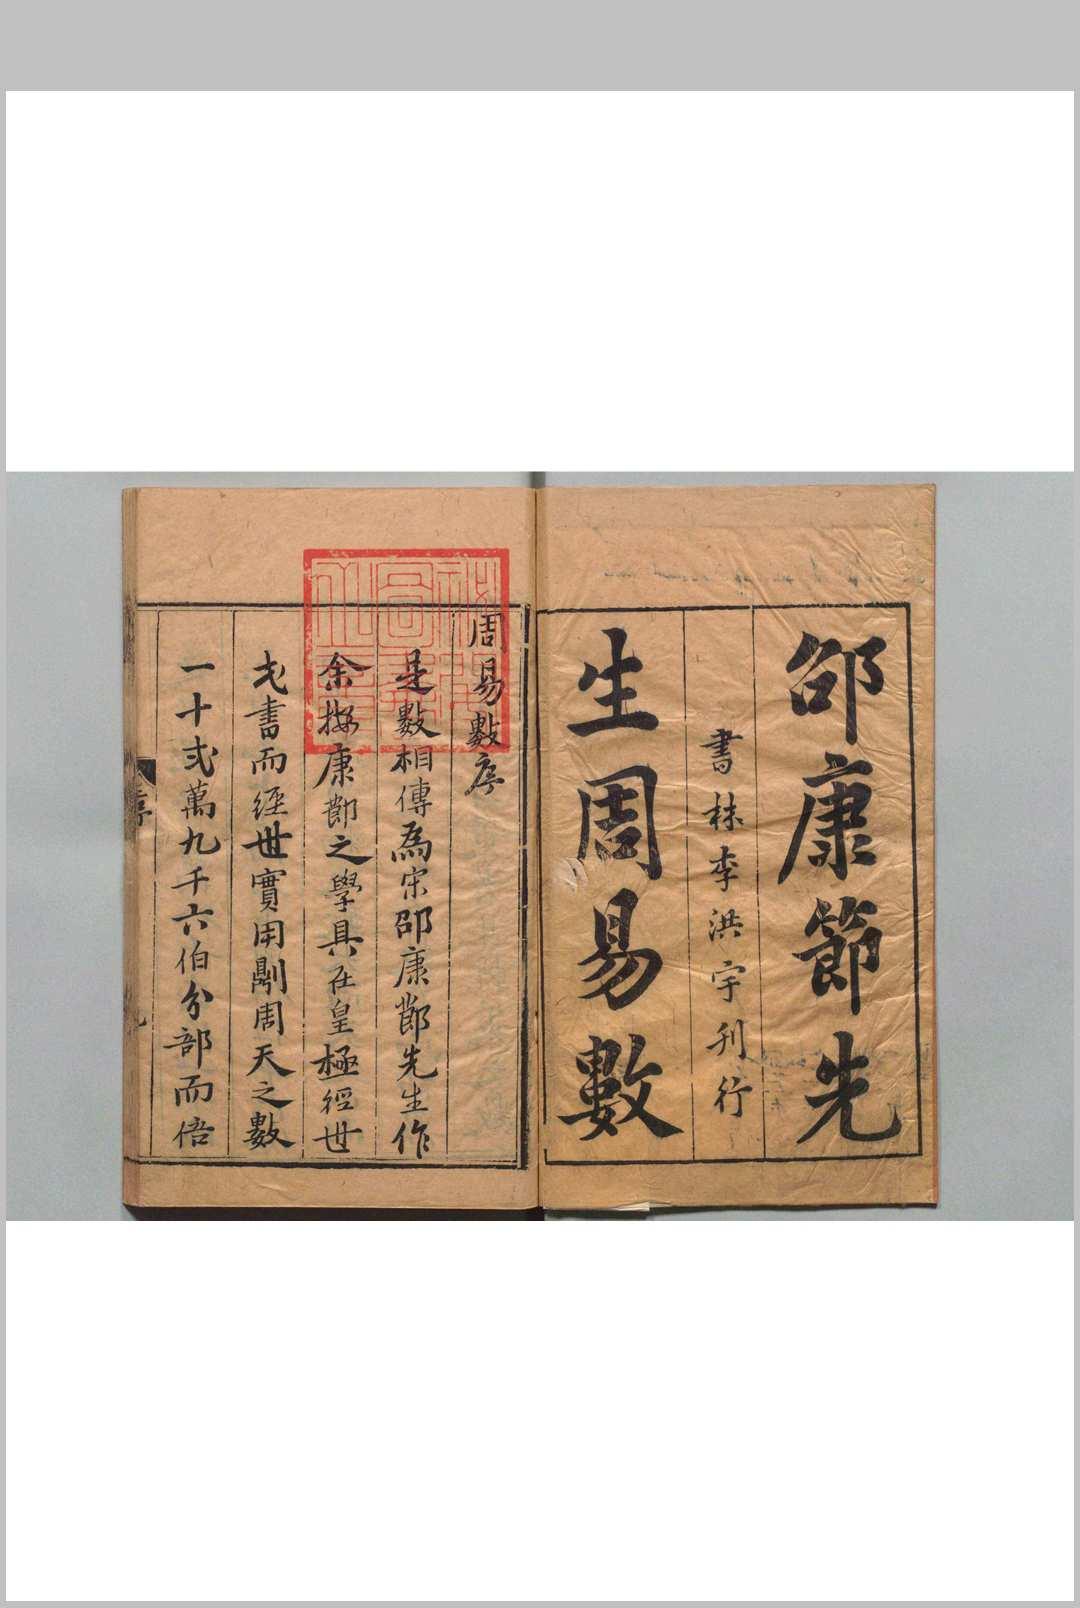 邵康節先
書林李洪宇刋行
生周易數
周易數序
是數相傳為宋邵康節先生作
余按康節之學具在皇極經世
書而經世實用周天之數
一十弍萬九千六伯分部而倍
序